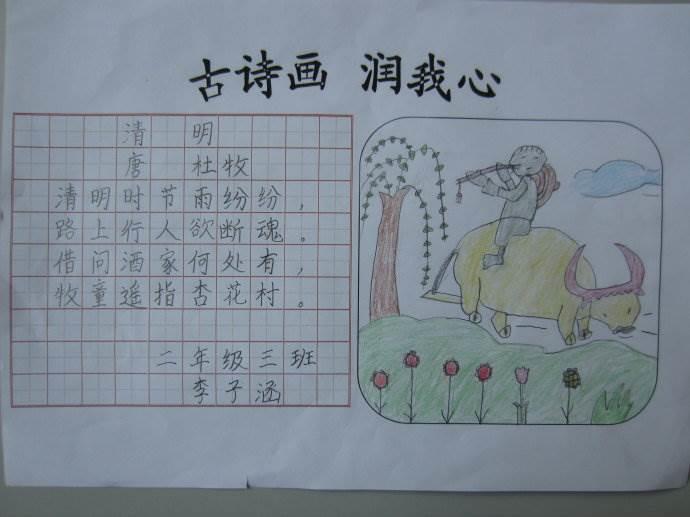 古诗画 润我心
清明
唐 杜牧
清明时节雨纷纷，
路上行人欲断魂。
借问酒家何处有，
牧童遥指杏花村。
二年级三班
李子涵